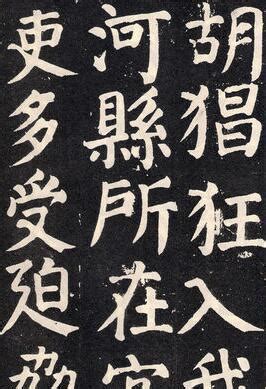 胡猖狂入我
河縣所在
吏多受廹